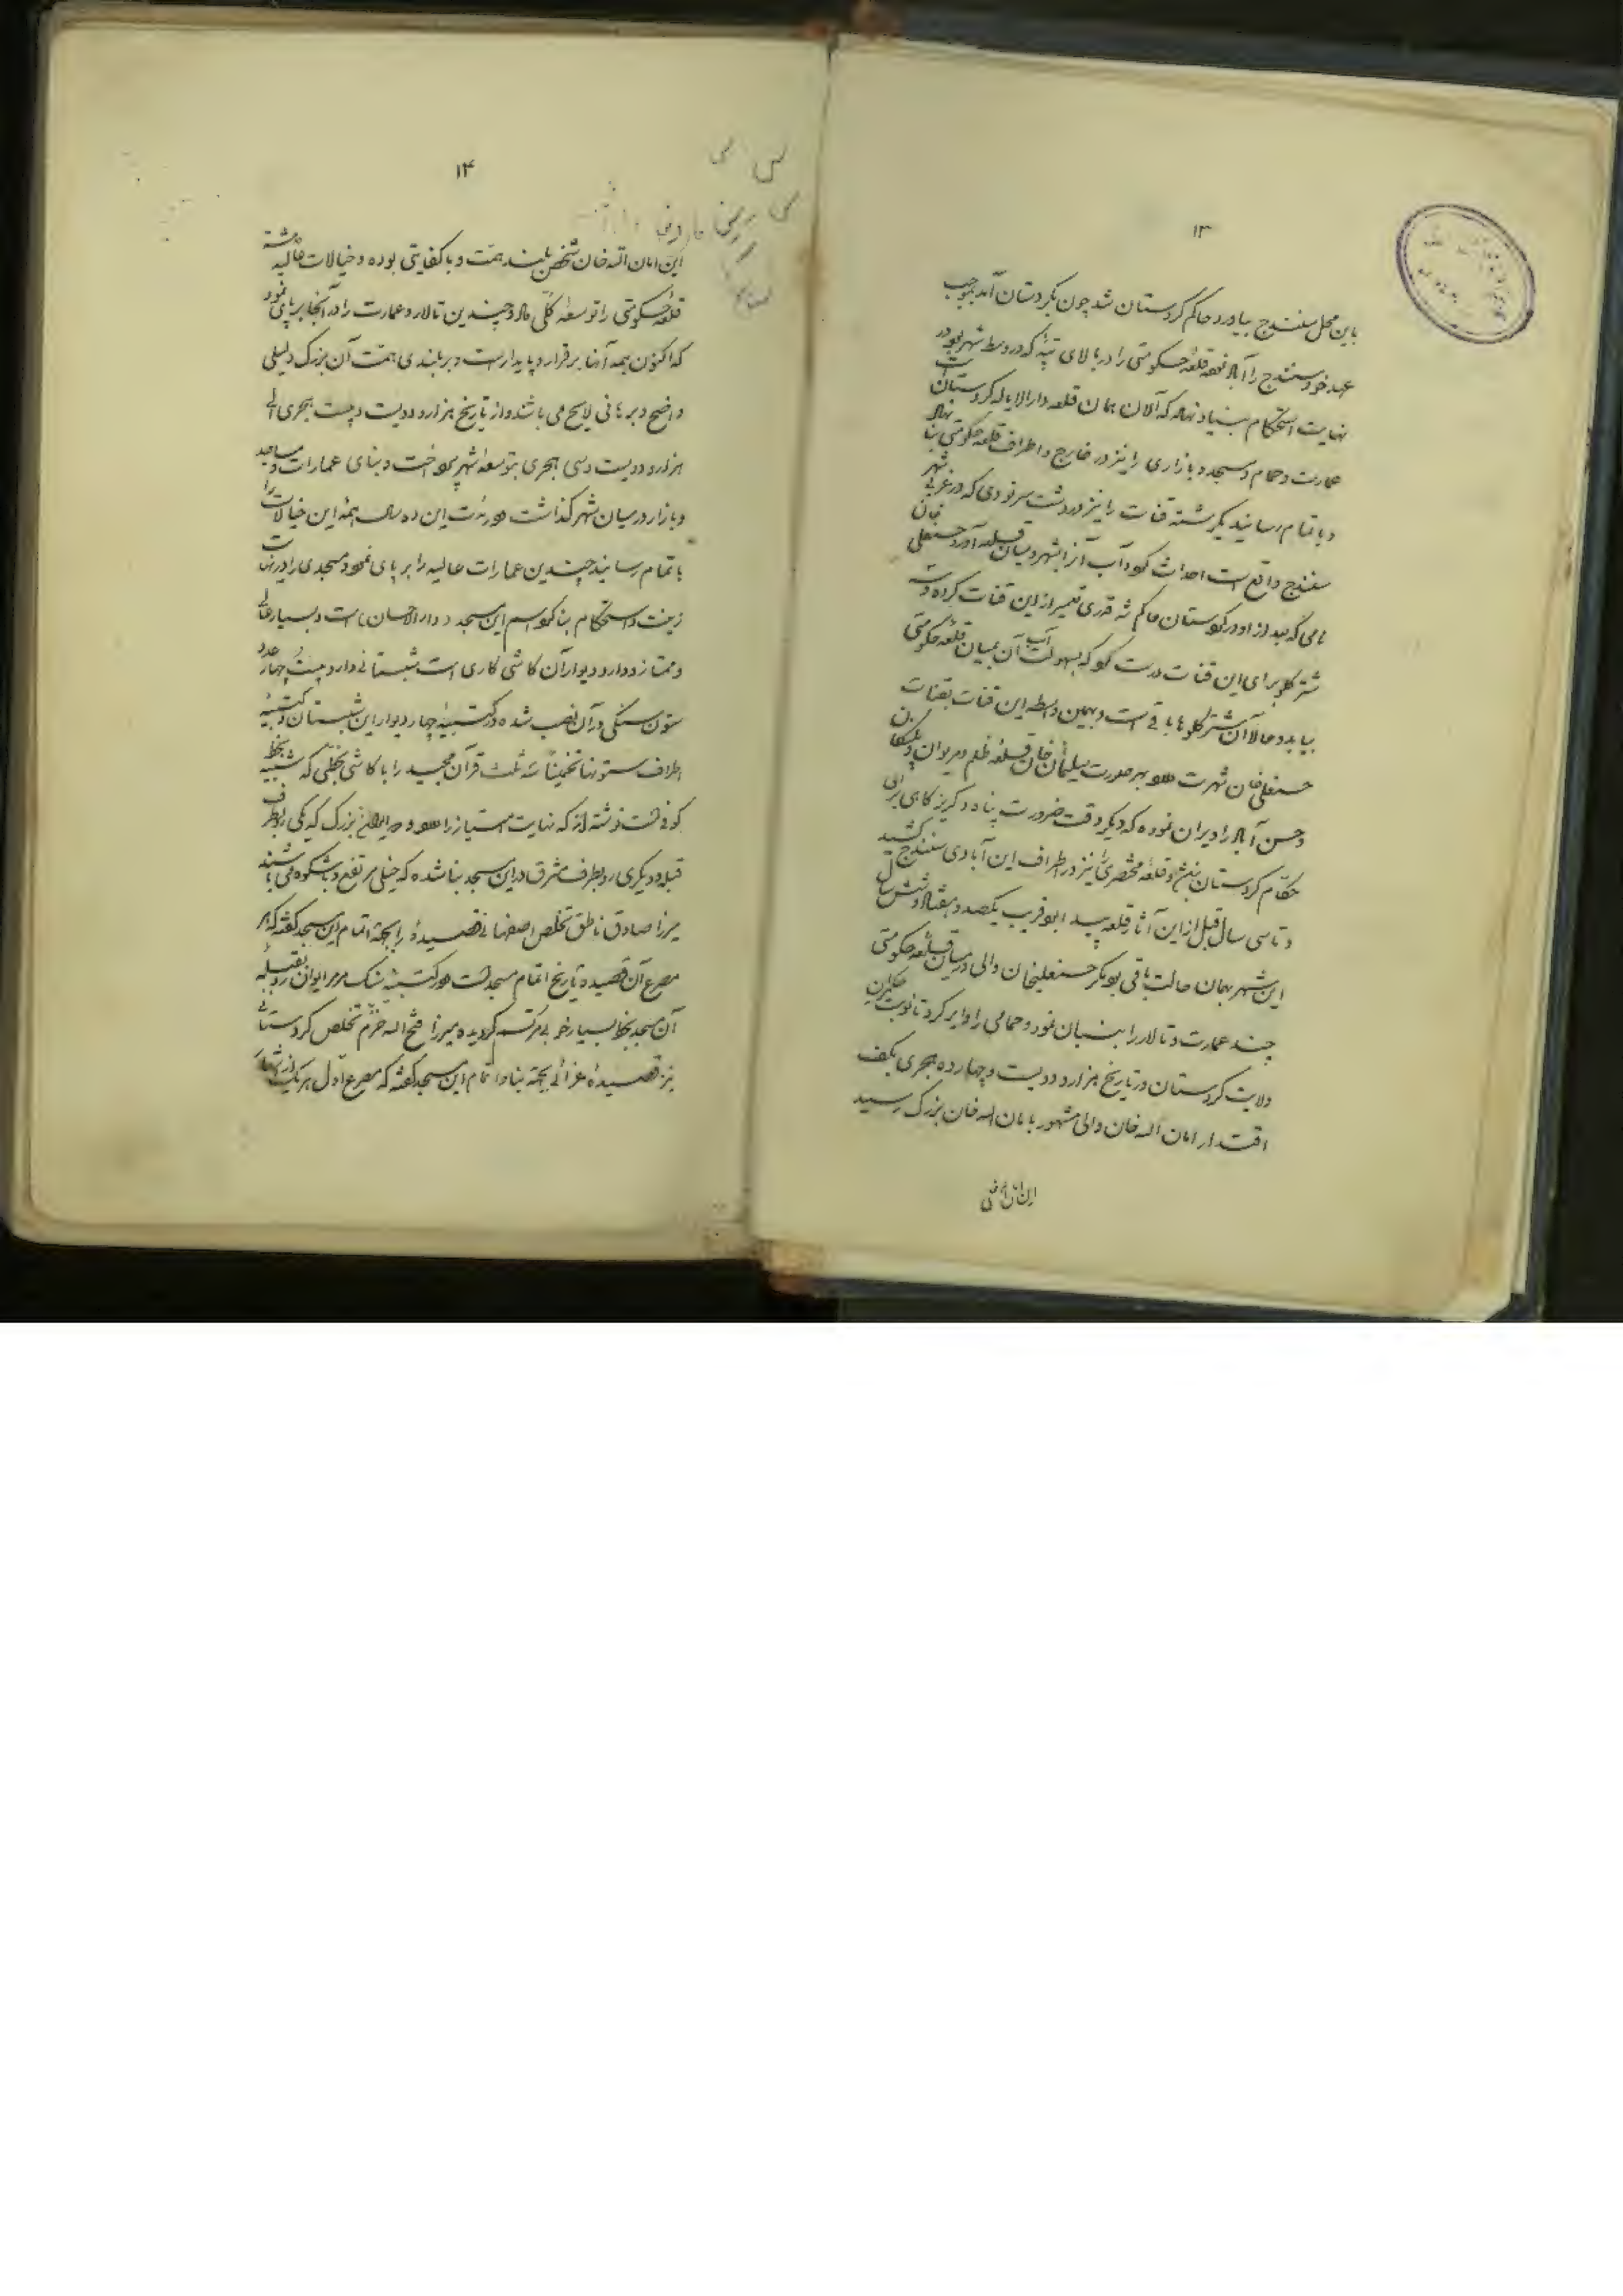 ۱۳
باین محل سنندج بیاورد حاکم کردستان شد چون بکردستان آمد بموجب
عهد خود سنندج را آباد قلعه حکومتی را در بالای تپه که در وسط شهر بود در
نهایت استحکام بنیاد نهاد که الان همان قلعه دارالایاله کردستان است
عمارت و حمام و مسجد و بازاری را نیز در خارج و اطراف قلعه حکومتی بنا نهاد
و باتمام رسانید یکرشته قنات را نیز در دشت سرنودی که در غربی شهر
سنندج واقع است احداث کرد و آب آنرا بشهر و میان قلعه آورد حسنعلی خان
نامی که بعد از او در کردستان حاکم شد قدری تعمیر از این قنات کرده و
شتر گلو برای این قنات درست کرد که بسهولت آب آن بمیان قلعه حکومتی
بیاید و حالا آن شتر گلوها باقی است و بهمین واسطه این قنات بقنات
حسنعلی خان شهرت دارد بهر صورت سلیمان خان قلعه ظلم و مریوان و پلنگان
و حسن آباد را ویران نموده که دیگر وقت ضرورت پناه و گریز گاهی برای
حکام کردستان نباشد و قلعه مختصری را نیز در اطراف این آبادی سنندج کشید
و تا سی سال قبل از این آثار قلعه پیدا بود قریب یکصد و هفتاد و شش سال
این شهر بهمان حالت باقی بود مگر حسنعلیخان والی در میان قلعه حکومتی
چند عمارت و تالار را بنیان نمود و حمامی را دایر کرد تا نوبت حکمرانی
ولایت کردستان در تاریخ هزار و دویست و چهارده هجری بکف
اقتدار امان اله خان والی مشهور بامان اله خان بزرگ رسید
۱۴
این امان اله خان شخص بلند همت و با کفایتی بوده و خیالات عالیه داشته
قلعه حکومتی را توسعه کلی داد و چندین تالار و عمارت را در آنجا برپای نمود
که اکنون همه آنها برقرار و پایدار است و بر بلندی همت آن بزرگ دلیلی
واضح و برهانی لایح می باشد و از تاریخ هزار و دویست و بیست هجری الی
هزار و دویست و سی هجری بتوسعه شهر پرداخت و بنای عمارات و مساجد
و بازار در میان شهر گذاشت در مدت این ده سال همه این خیالات را
باتمام رسانید چندین عمارات عالیه را برپای نمود مسجدی را در نهایت
زینت و استحکام بنا کرد اسم این مسجد (دارالاحسان) است و بسیار عالی
و ممتاز و در و دیوار آن کاشی کاری است شبستانی دارد بیست و چهار عدد
ستون سنگی در آن نصب شده در کتیبه چهار دیوار این شبستان و کتیبه
اطراف ستونها تخمیناً سه ثلث قرآن مجید را با کاشی بخطی که شبیه بخط
کوفی است نوشته اند که نهایت امتیاز را دارد و دو ایوان بزرگ که یکی رو بطرف
قبله و دیگری رو بطرف مشرق در این مسجد بنا شده که خیلی مرتفع و باشکوه می باشند
میرزا صادق ناطق تخلص اصفهانی قصیدهٔ را بجهة اتمام این مسجد گفته که هر
مصرع آن قصیده تاریخ اتمام مسجد است در کتیبه سنک مرمر ایوان رو بقبلهٔ
آن مسجد بخط بسیار خوبی مرتسم گردیده میرزا فتح اله خرم تخلص کردستانی
نیز قصیدهٔ غرائی بجهة بنا و اتمام این مسجد گفته که مصرع اول هر یک از